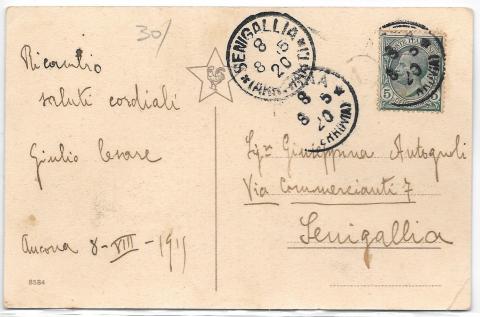 30/
SENIGALLIA
8 8
20
5
8 8
20
Ricambio
saluti cordiali
Giulio Cesare
Ancona 8-VIII-1911
Sig.ª Giuseppina
Via Commercianti 7
Senigallia
8584